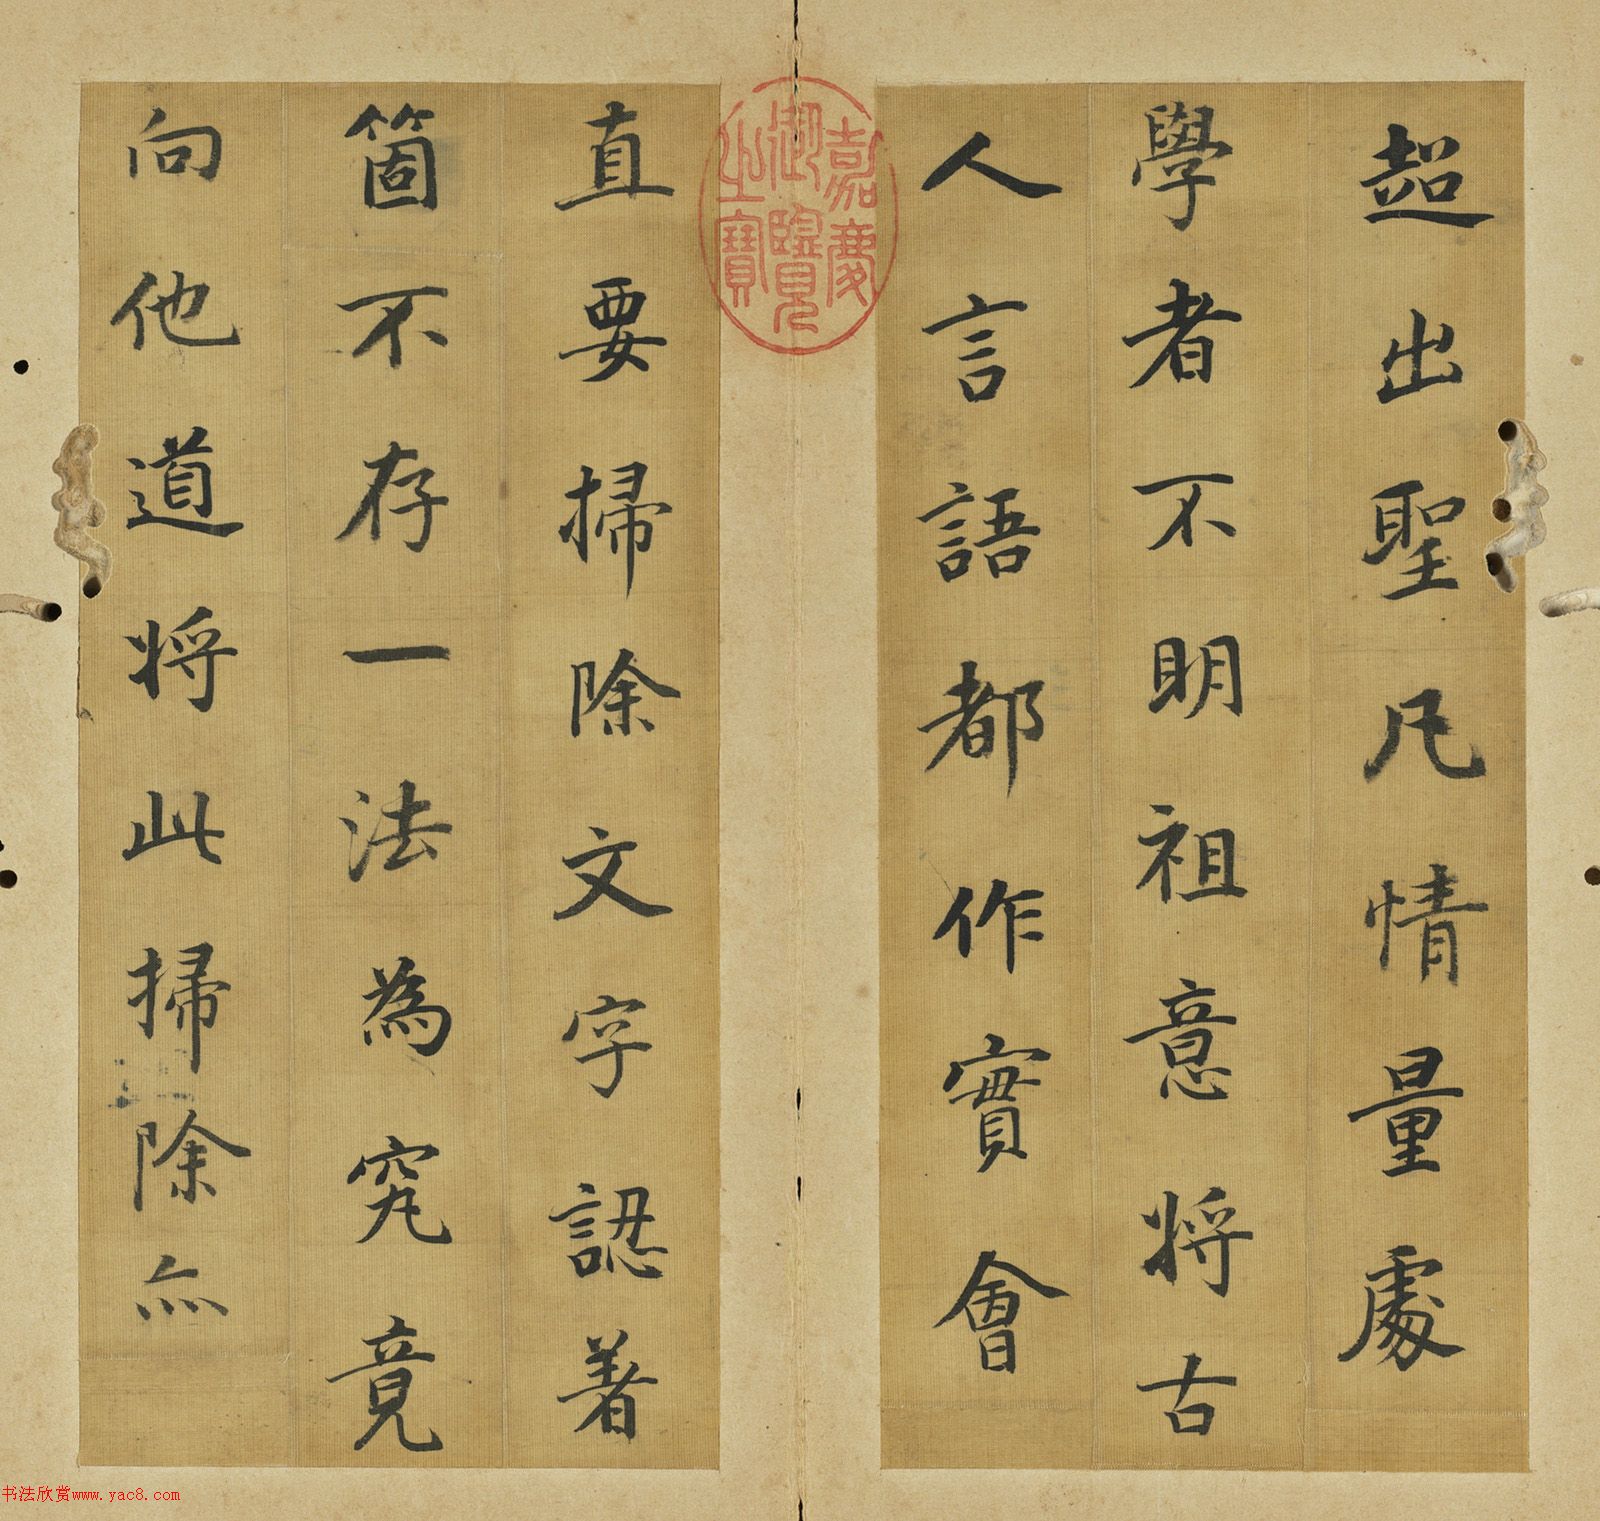 超出聖凡情量處
學者不明祖意將古
人言語都作實會
嘉慶
御覽
之寶
直要掃除文字認著
箇不存一法為究竟
向他道將此掃除亦
书法欣赏www.yac8.com